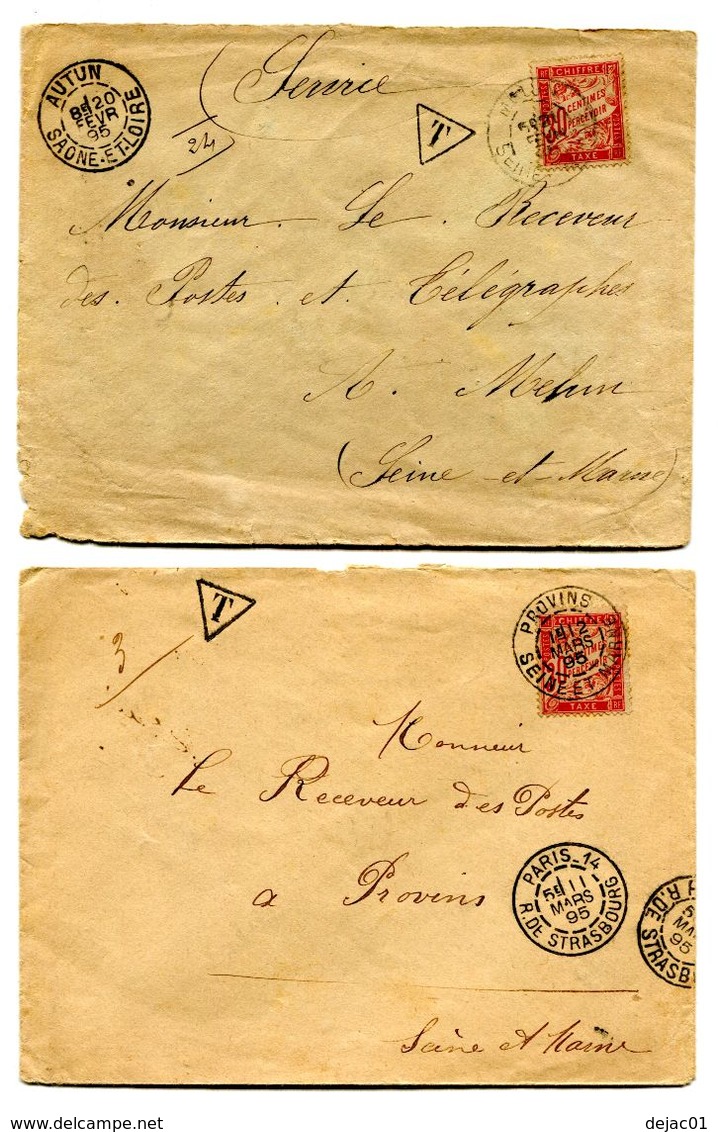 AUTUN
8E 20
FEVR
95
SAONE-ET-LOIRE
(Service
24
T
RF CHIFFRE
30 CENTIMES
PERCEVOIR
TAXE
SEINE
Monsieur. Le. Receveur
des. Postes. et. Télégraphes
A. Melun
(Seine-et-Marne)
T
3
PROVINS
1E 12
MARS
95
SEINE ET MARNE
CHIFFRE
30 CENTIMES
PERCEVOIR
TAXE RF
Monsieur
Le Receveur des Postes
à Provins
PARIS_14
5E 11
MARS
95
R. DE STRASBOURG
R. DE STRASBO
5
MA
95
Seine et Marne
www.delcampe.net
dejac01